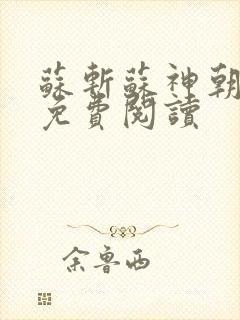 蘇斬蘇神朝
免費閱讀
余魯西